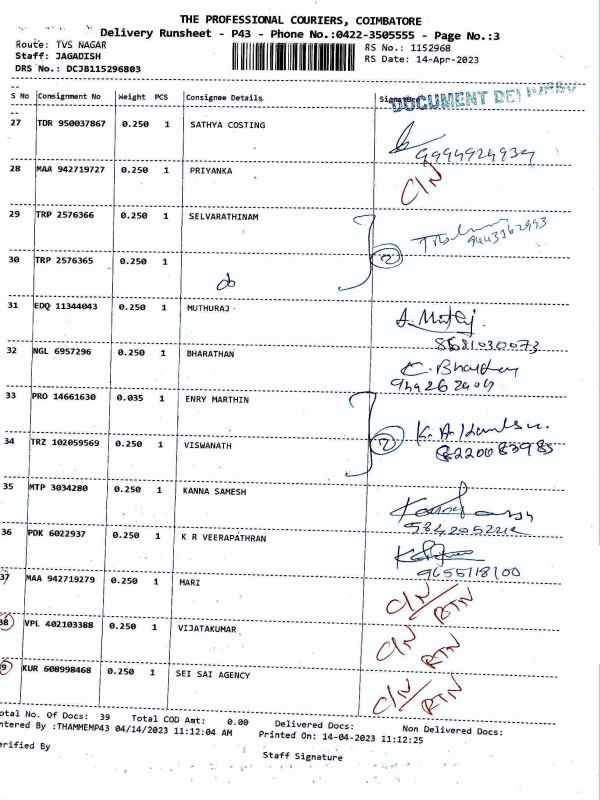 THE PROFESSIONAL COURIERS, COIMBATORE
Delivery Runsheet - P43 - Phone No.:0422-3505555 - Page No.:3
Route: TVS NAGAR
RS No.: 1152968
Staff: JAGADISH
RS Date: 14-Apr-2023
DRS No.: DCJB115296803
S No Consignment No Weight PCS Consignee Details Signature
DOCUMENT
27 TDR 950037867 0.250 1 SATHYA COSTING
9994924934
28 MAA 942719727 0.250 1 PRIYANKA C/N
29 TRP 2576366 0.250 1 SELVARATHINAM
9443362993
30 TRP 2576365 0.250 1
do
31 EDQ 11344043 0.250 1 MUTHURAJ
8681030073
32 NGL 6957296 0.250 1 BHARATHAN
33 PRO 14661630 0.035 1 ENRY MARTHIN
34 TRZ 102059569 0.250 1 VISWANATH
8220083985
35 MTP 3034280 0.250 1 KANNA SAMESH
36 PDK 6022937 0.250 1 K R VEERAPATHRAN
9655118100
37 MAA 942719279 0.250 1 MARI C/N/RTN
38 VPL 402103388 0.250 1 VIJATAKUMAR C/N RTN
9 KUR 608998468 0.250 1 SEI SAI AGENCY C/N/RTN
otal No. Of Docs: 39 Total COD Amt: 0.00 Delivered Docs: Non Delivered Docs:
ntered By :THAMMEMP43 04/14/2023 11:12:04 AM Printed On: 14-04-2023 11:12:25
erified By
Staff Signature